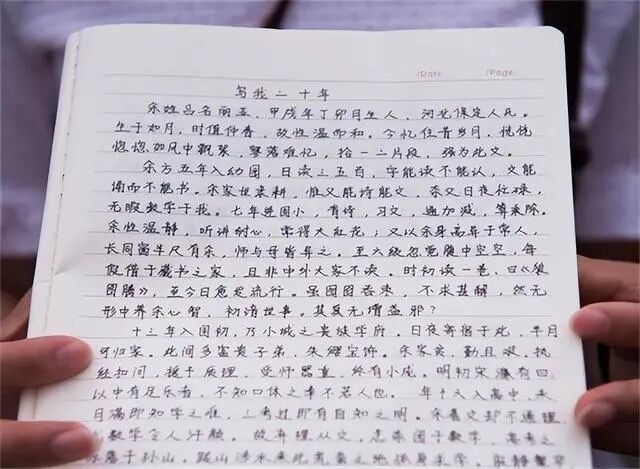 /Date: /Page:
写我二十年
余姓吕名丽孟,甲戌年丁卯月生人,河北保定人氏。
生于如月,时值仲春,故性温而和。今忆住昔岁月,恍恍
惚惚如风中飘絮,零落难忆,拾一二片段,强为此文。
余方五年入幼园,日读三五百,字能读不能认,文能
诵而不能书。余家世来耕,惟父能诗能文,奈父日夜忙碌,
无暇教学于我。七年进国小,有诗,习文,通加减,算乘除。
余性温静,听讲耐心,常得大红花;又以余身高异于常人,
长同窗半尺有余,师与母皆异之。至六级忽觉腹中空空,每
假借于藏书之家,且非中外大家不读。时初读一卷,曰《狼
图腾》,至今日愈发流行。虽囫囵吞枣,不求甚解,然无
形中养余心智,初谙世事。其莫无増益邪?
十三年入国初,乃小城之贵族学府。日夜寄宿于此,半月
可归家。此间多富贵子弟,朱缨宝饰。余家贫,勤且艰,执
经扣问,援于质理,受师器重,终有小成。明初宋濂有曰
以中有足乐者,不知口体之奉不若人也。年十六入高中,来
日满即知学之难,三考过即有自知之明。余喜文却不通理,
数学令人汗颜。故弃理从文,志来困于数学,高考之
落于孙山。跋山涉水来此荒凉之地